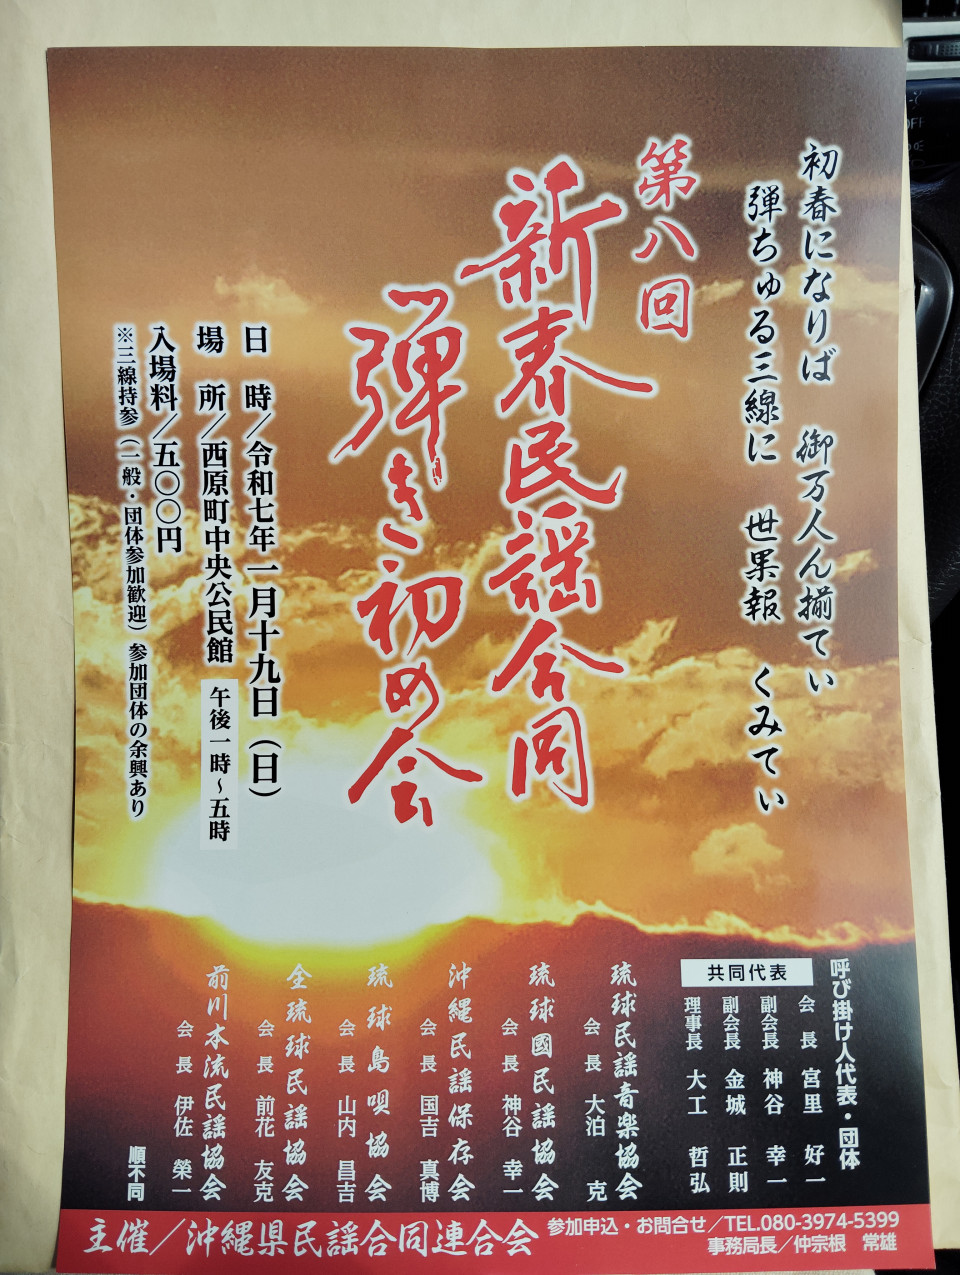 初春になりば 御万人ん揃てぃ
弾ちゅる三線に 世果報 くみてぃ
第八回
新春民謡合同
弾き初め会
日 時／令和七年一月十九日（日）
場 所／西原町中央公民館 午後一時～五時
入場料／五〇〇円
※三線持参（一般・団体参加歓迎）参加団体の余興あり
呼び掛け人代表・団体
共同代表
会 長 宮里 好一
副会長 神谷 幸一
副会長 金城 正則
理事長 大工 哲弘
琉球民謡音楽協会
会 長 大泊 克
琉球國民謡協会
会 長 神谷 幸一
沖縄民謡保存会
会 長 国吉 真博
琉球島唄協会
会 長 山内 昌吉
全琉球民謡協会
会 長 前花 友克
前川本流民謡協会
会 長 伊佐 榮一
順不同
主催／沖縄県民謡合同連合会
参加申込・お問合せ／TEL.080-3974-5399
事務局長／仲宗根 常雄
OFF